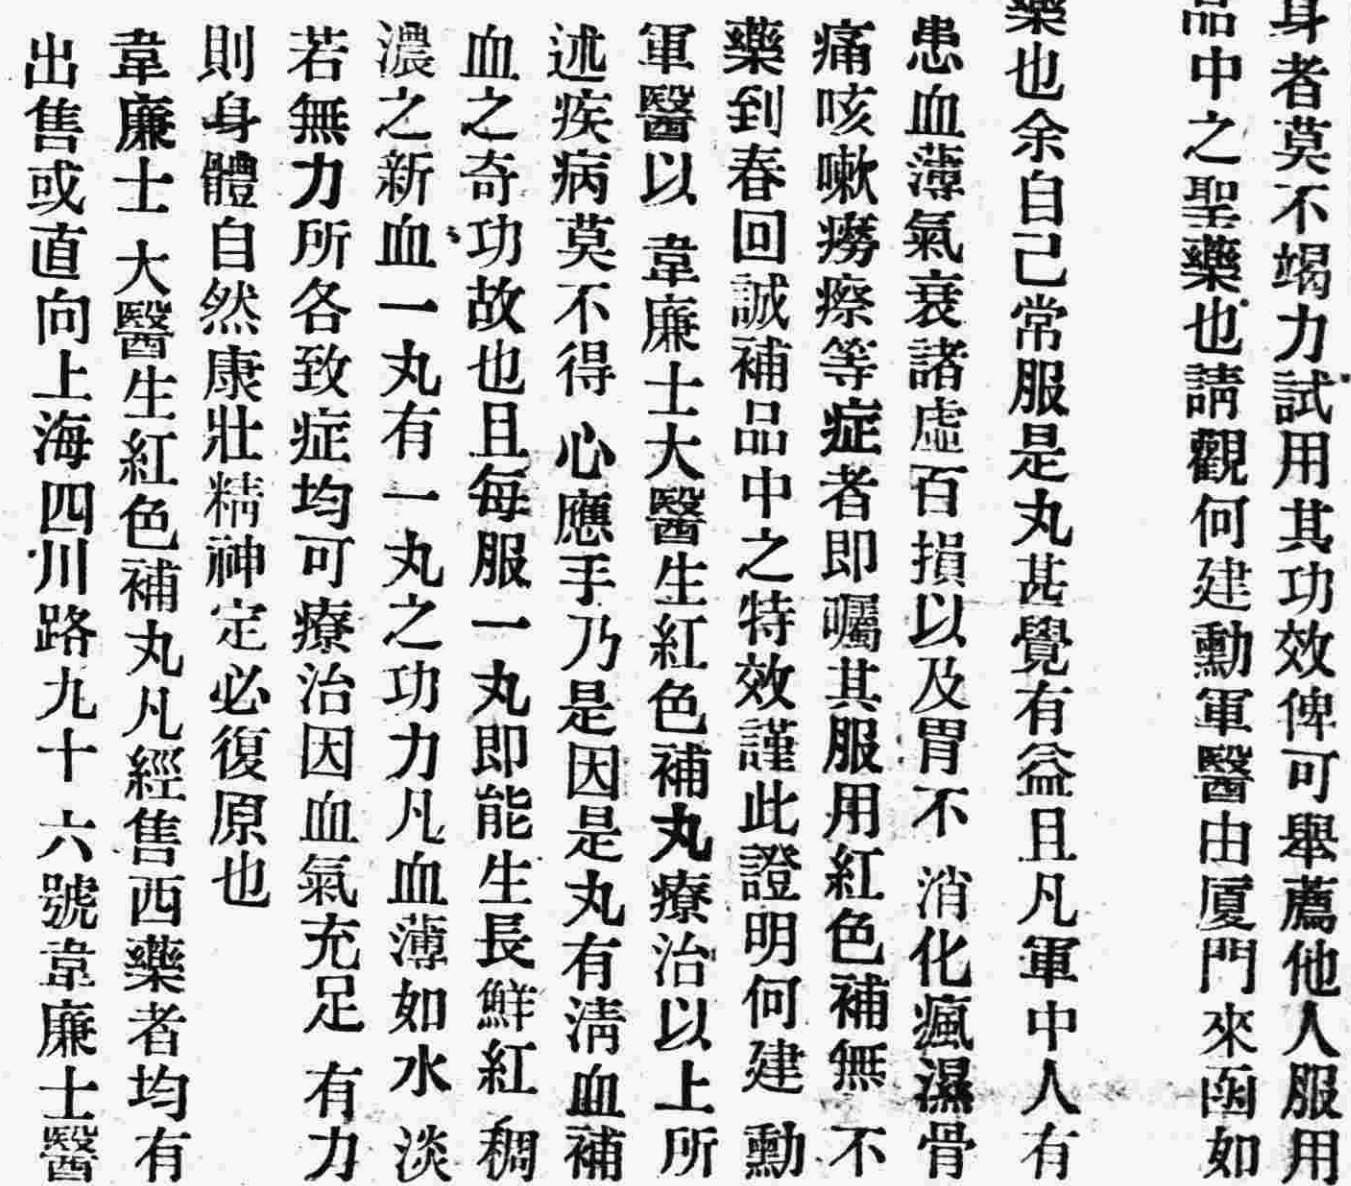 身者莫不竭力試用其功效俾可舉薦他人服用
品中之聖藥也請觀何建勳軍醫由廈門來函如
藥也余自己常服是丸甚覺有益且凡軍中人有
患血薄氣衰諸虛百損以及胃不消化瘋濕骨
痛咳嗽癆瘵等症者即囑其服用紅色補無不
藥到春回誠補品中之特效謹此證明何建勳
軍醫以韋廉士大醫生紅色補丸療治以上所
述疾病莫不得心應手乃是因是丸有淸血補
血之奇功故也且每服一丸即能生長鮮紅稠
濃之新血一丸有一丸之功力凡血薄如水淡
若無力所各致症均可療治因血氣充足有力
則身體自然康壯精神定必復原也
韋廉士大醫生紅色補丸凡經售西藥者均有
出售或直向上海四川路九十六號韋廉士醫